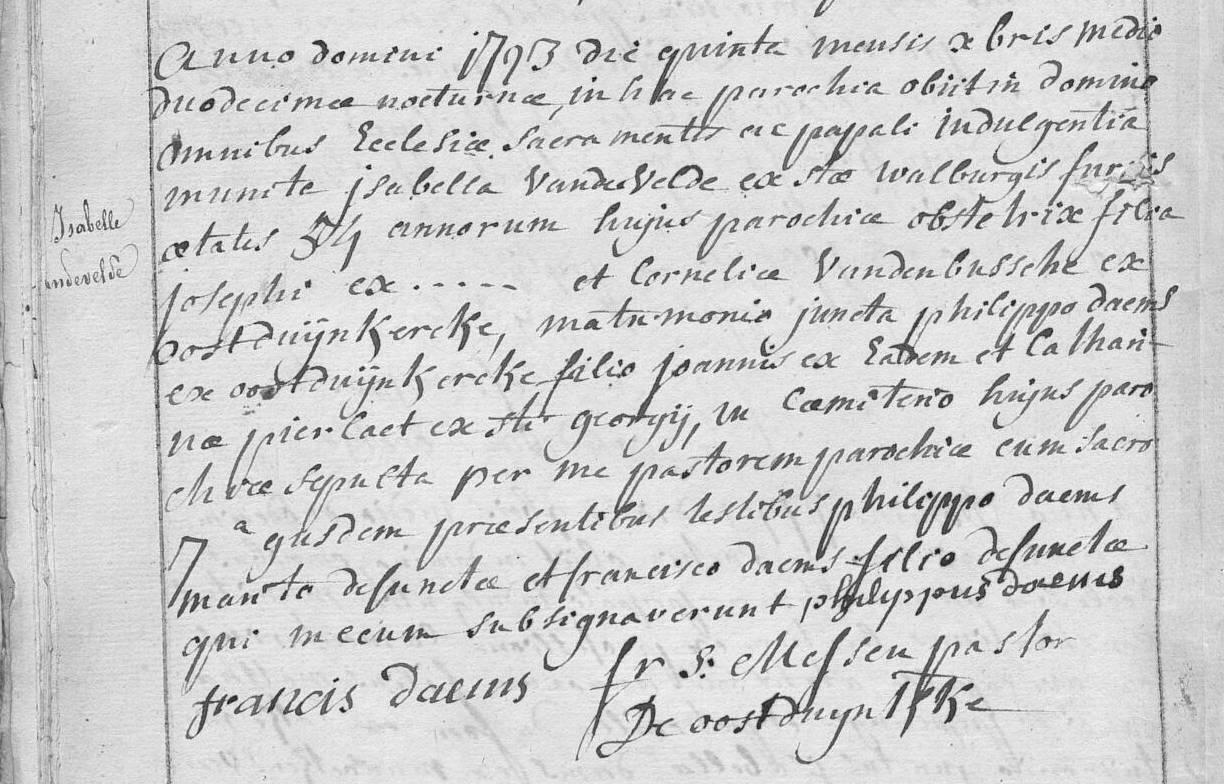 Isabelle
ndevelde
Anno domini 1793 die quinta mensis xbris medio
duodecimæ nocturnæ, in hac parochia obiit in domino
omnibus Ecclesiæ sacramentis ac papali indulgentiâ
munita jsabella VandeVelde ex stæ walburgis furnis
ætatis 54 annorum hujus parochiæ obstetrix filia
josephi ex ..... et Corneliæ Vandenbussche ex
oostduÿnkercke, matrimonio juncta philippo daems
ex oostduÿnkercke filio joannis ex Eadem et Cathari-
næ pierlaet ex sti georgij, in Cæmiterio hujus paro
chiæ sepulta per me pastorem parochiæ cum sacro
7a ejusdem præsentibus testibus philippo daems
marito defunctæ et francisco daems filio defunctæ
qui mecum subsignaverunt philippus daems
francis Daems fr S: Messen pastor
De oostduynkke